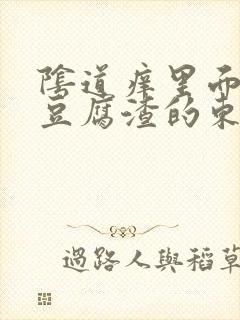 陰道痒里而
豆腐渣的東
過路人與稻草